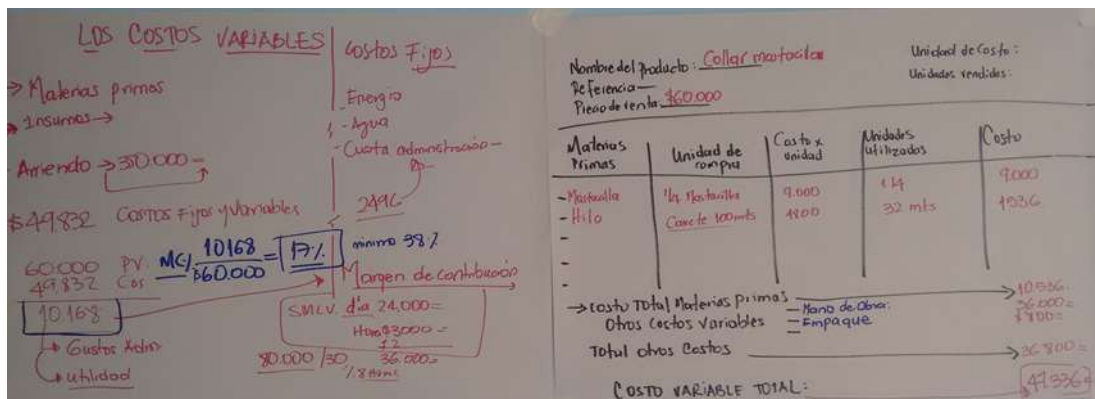 LOS COSTOS VARIABLES
→ Materias primas
Insumos →
Arriendo → 350.000 =
$49,832 Costos Fijos y Variables
60.000 PV.
49.832 Cos
10.168
Gastos Adm
utilidad
MC/ 10168 / $60.000 = 17% minimo 38%
Costos Fijos
- Energia
- Agua
- Cuota administración -
2496
Margen de contribución
SMLV. día 24,000=
Hora $3000 =
12
36.000=
80.000 /30
/ 8 Horas
Nombre del Producto: Collar mostacilla
Referencia —
Precio de venta: $60.000
Unidad de Costo:
Unidades vendidas:
Materias Primas
Unidad de compra
Costo x unidad
Unidades utilizadas
Costo
- Mostacilla 1/4 Mostacilla 9.000 1/4 9.000
- Hilo Conete 100mts 4800 32 mts 1536
→ Costo Total Materias primas → 10.536.
Otros Costos Variables
- Mano de Obra: 36.000=
- Empaque $800=
Total otros Costos → 36.800=
COSTO VARIABLE TOTAL: 47.336